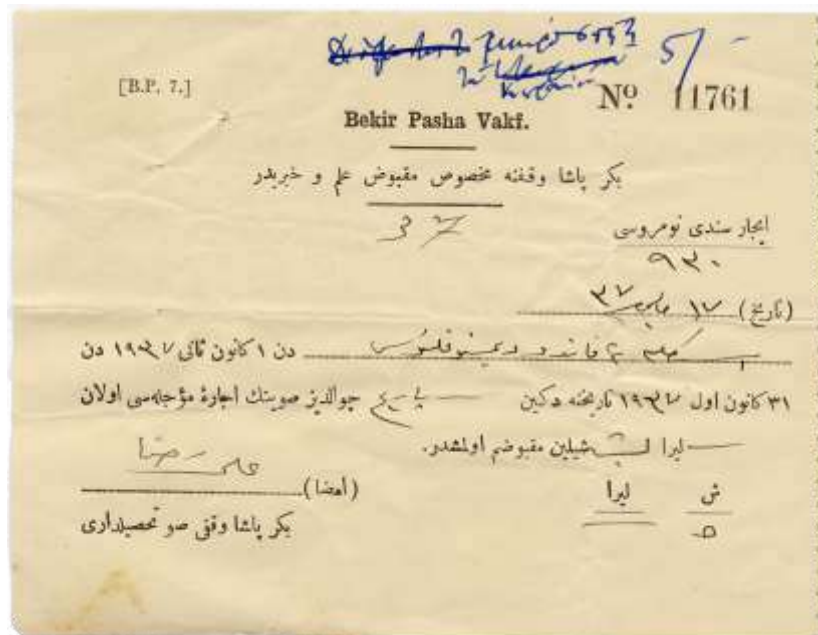 5/-
[B.P. 7.]
Nº 11761
Bekir Pasha Vakf.
بكر پاشا وقفنه مخصوص مقبوض علم و خبريدر
٣٧
ايجار سندى نومروسى
٩٣٠
(تاريخ) ١٧ مايس ٣٧
دن ١ كانون ثانى ١٩٣٧ دن
٣١ كانون اول ١٩٣٧ تاريخنه دكين چوالديز صوينك اجارهٔ مؤجله‌سى اولان
ليرا شيلين مقبوضم اولمشدر.
ش ليرا
٥
على رضا
(امضا)
بكر پاشا وقفى صو تحصيلدارى